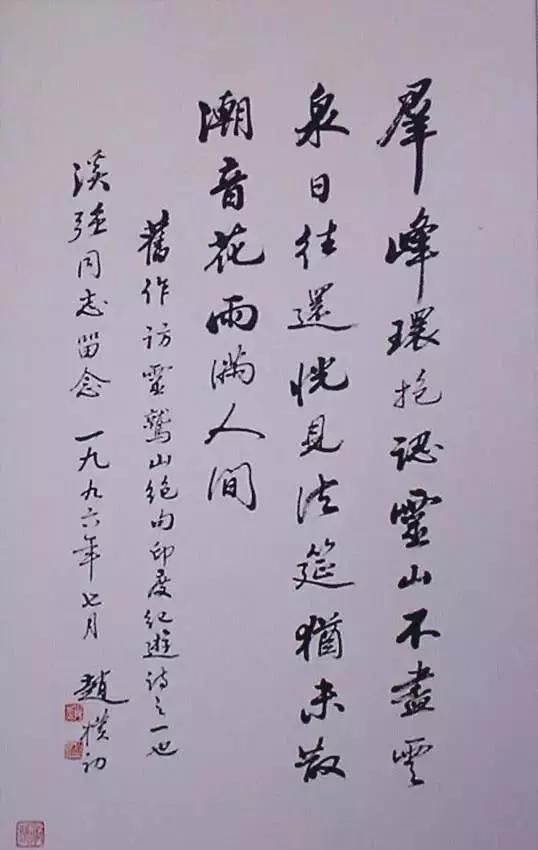 羣峰環抱認靈山不盡雲
泉日往還恍見法筵猶未散
潮音花雨滿人間
舊作訪靈鷲山絕句印度紀遊詩之一也
强同志留念 一九九六年七月 趙樸初